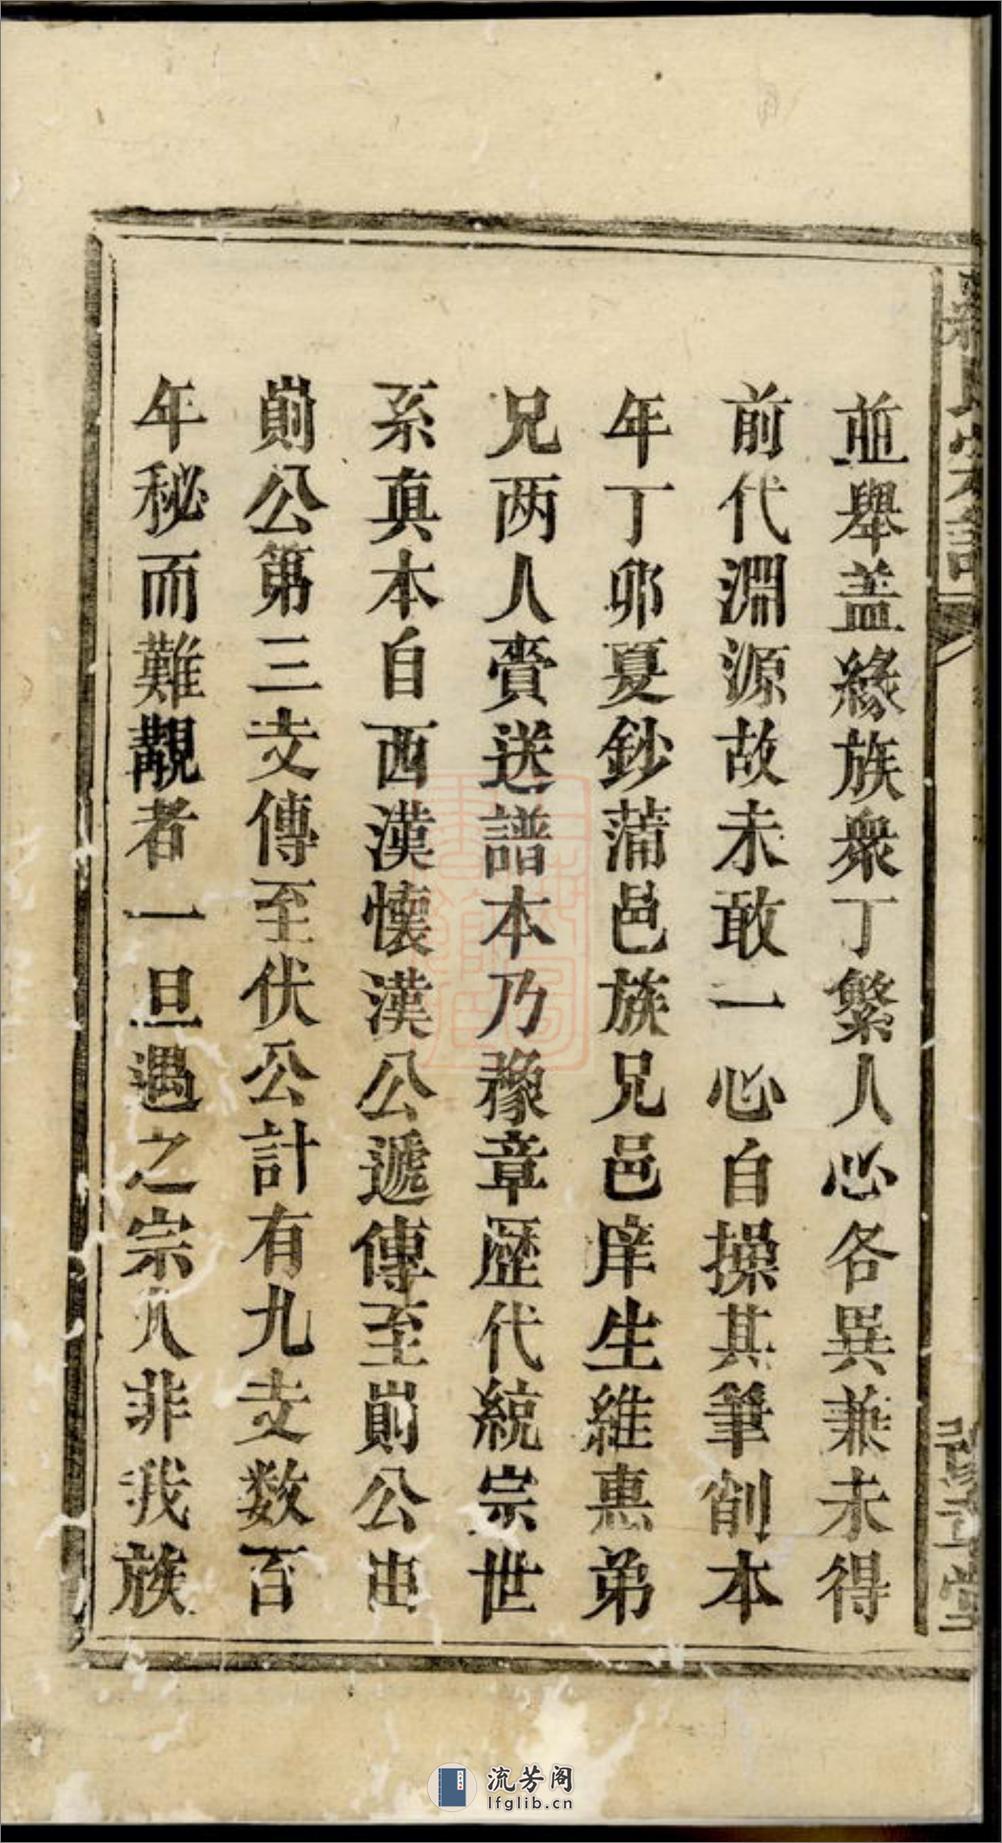 並舉盖緣族衆丁繁人心各異兼未得
前代淵源故未敢一心自操其筆削本
年丁卯夏鈔蒲邑族兄邑庠生維惠弟
兄两人賷送譜本乃豫章歷代統宗世
系真本自西漢懷漢公遞傳至崱公由
崱公第三支傳至伏公計有九支数百
年秘而難覩者一旦遇之宗人非我族
氏宗譜
豫章堂
流芳阁
lfglib.cn